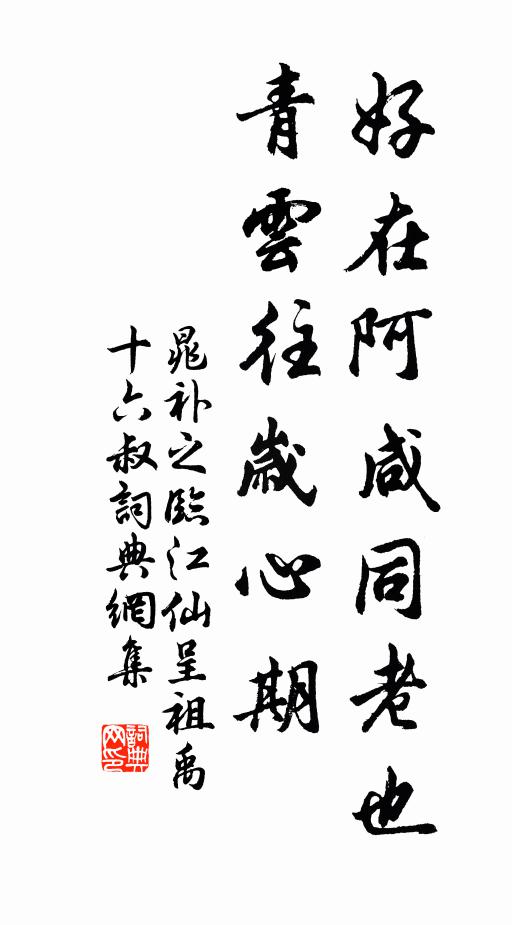 好在阿咸同老也
青雲往歲心期
晁补之臨江仙呈祖禹
十六叔詞典網集
詞典网印